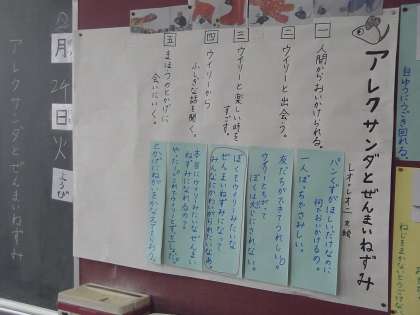 アレクサンダとぜんまいねずみ
レオ・レオニ 文・絵
一 人間からおいかけられる。
二 ウイリーと出会う。
三 ウイリーと楽しい時をすごす。
四 ウイリーからふしぎな話を聞く。
五 まほうのとかげに会いにいく。
パンくずがほしいだけなのに
何でおいかけるの。
一人ぼっちやさみしい。
友だちができてうれしいな
ウイリーとちがって
ぼくは大じにされない。
ぼくもウイリーみたいな
ぜんまいねずみになって
みんなにかわいがられたいなあ。
本当にウイリーみたいなぜんまい
ねずみになれるの？
月
24
日
火
ようび
アレクサンダとぜんまいねずみ